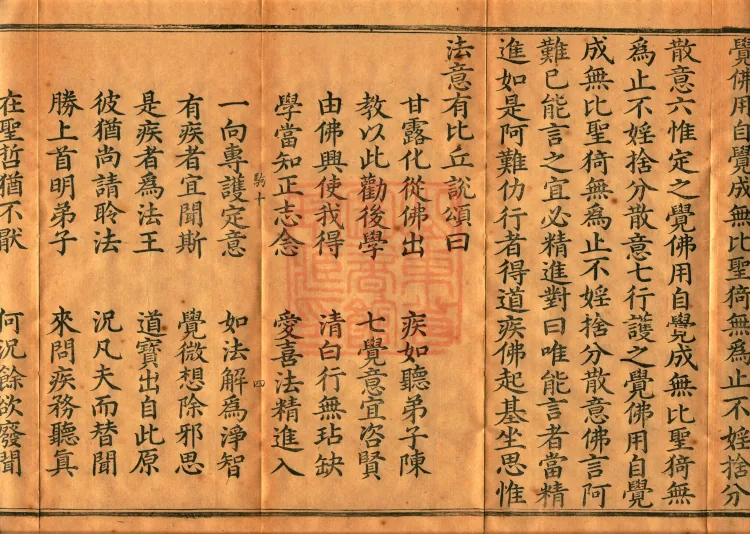 覺佛用自覺成無比聖猗無爲止不婬捨分
散意六惟定之覺佛用自覺成無比聖猗無
爲止不婬捨分散意七行護之覺佛用自覺
成無比聖猗無爲止不婬捨分散意佛言阿
難已能言之宜必精進對曰唯能言者當精
進如是阿難仂行者得道疾佛起基坐思惟
法意有比丘說頌曰
甘露化從佛出　疾如聽弟子陳
教以此勸後學　七覺意宜咨賢
由佛興使我得　清白行無玷缺
學當知正志念　愛喜法精進入
一向專護定意　如法解爲淨智
駒十　四
有疾者宜聞斯　覺微想除邪思
是疾者爲法王　道寶出自此原
彼猶尚請聆法　況凡夫而替聞
勝上首明弟子　來問疾務聽眞
在聖哲猶不厭　何況餘欲廢聞